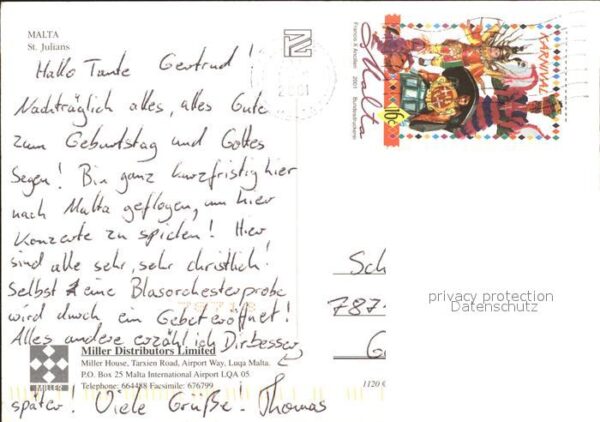 MALTA
St. Julians
Hallo Tante Gertrud!
Nachträglich alles, alles Gute
zum Geburtstag und Gottes
Segen! Bin ganz kurzfristig hier
nach Malta geflogen, um hier
Konzerte zu spielen! Hier
sind alle sehr, sehr christlich!
Selbst eine Blasorchesterprobe
wird durch ein Gebet eröffnet!
Alles andere erzähl ich Dir besser
später! Viele Grüße! Thomas
Miller Distributors Limited
Miller House, Tarxien Road, Airport Way, Luqa Malta.
P.O. Box 25 Malta International Airport LQA 05.
Telephone: 664488 Facsimile: 676799
MILLER
KARNIVAL
Malta
16c
2001
2001
Sch
787
G
1120
privacy protection
Datenschutz